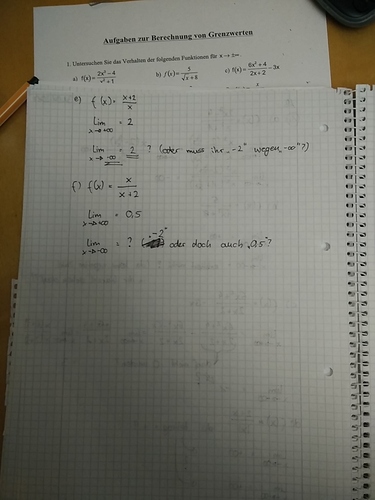 Aufgaben zur Berechnung von Grenzwerten
1. Untersuchen Sie das Verhalten der folgenden Funktionen für x → ±∞
a) f(x) = (2x² − 4)/(x² + 1) b) f(x) = 5/√(x + 8) c) f(x) = (6x² + 4)/(2x + 2) − 3x
e) f(x) = (x+2)/x
lim x→+∞ = 2
lim x→−∞ = 2 ? (oder muss ihr „−2" wegen −∞"?)
f) f(x) = x/(x+2)
lim x→+∞ = 0,5
lim x→−∞ = ? „−2" oder doch auch „0,5"?